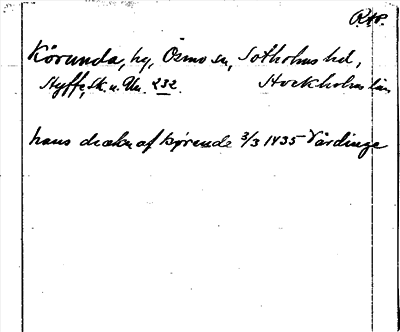 R.AP.
Körunda, by, Ösmo sn, Sotholms hd,
Styffe, Sk. u. Un. 232. Stockholms län
hans dræken af Kyrende 3/3 1435 Vårdinge